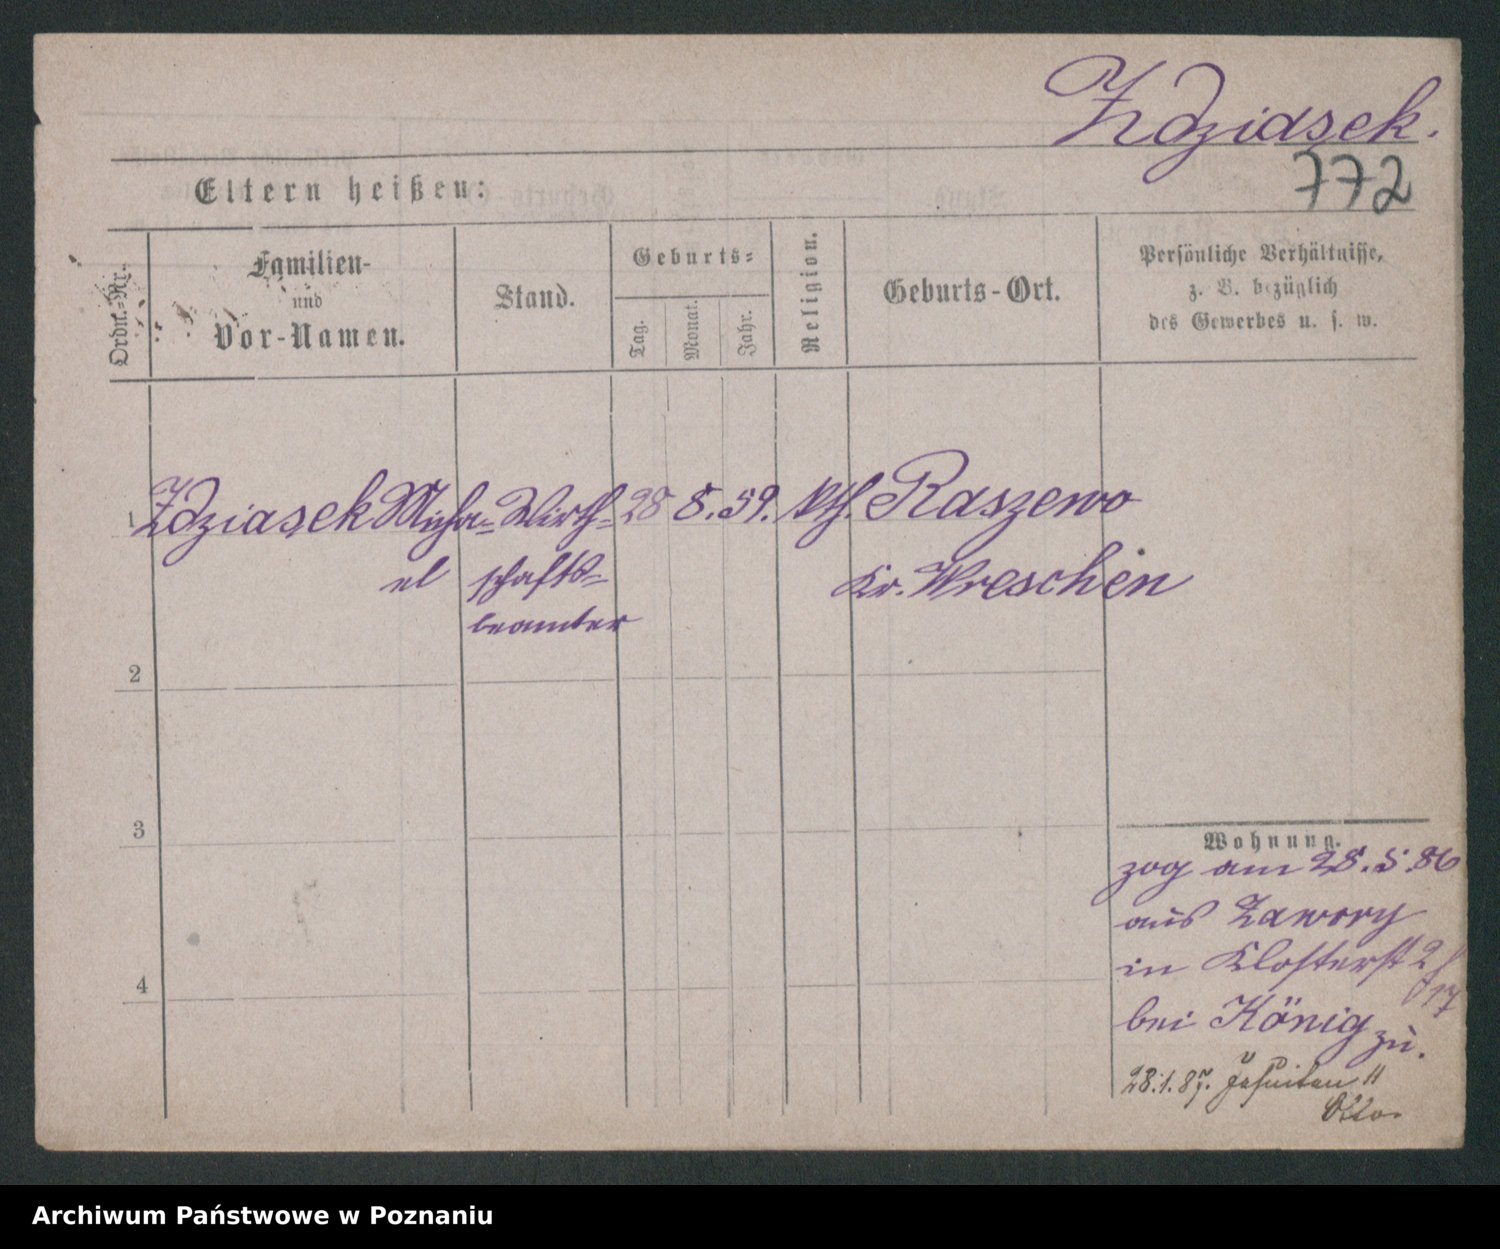 Zdziasek.
772
Eltern heißen:
Ordn.-Nr.
Familien-
und
Vor-Namen.
Stand.
Geburts-
Tag.
Monat.
Jahr.
Religion.
Geburts-Ort.
Persönliche Verhältnisse,
z. B. bezüglich
des Gewerbes u. s. w.
1 Zdziasek Micha- Wirth- 28 8. 59. kth. Raszewo
el schafts- Kr. Wreschen
beamter
2
3
4
Wohnung.
zog am 28.5.86
aus Zawory
in Klosterst
bei König zu.
28.1.87. Jesuiten 11
Otto.
Archiwum Państwowe w Poznaniu